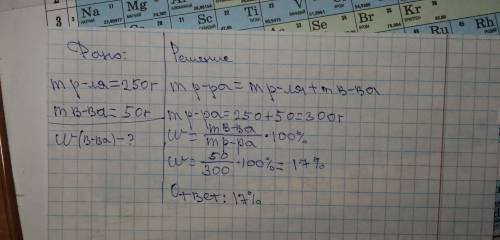 Na Mg Sc Ti V Mn
Br Kr Ru Rh
Дано:
mр-ля=250г
mв-ва=50г
w(в-ва)-?
Решение
mр-ра=mр-ля+mв-ва
mр-ра=250+50=300г
w=mв-ва/mр-ра·100%
w=50/300·100%=17%
Ответ: 17%